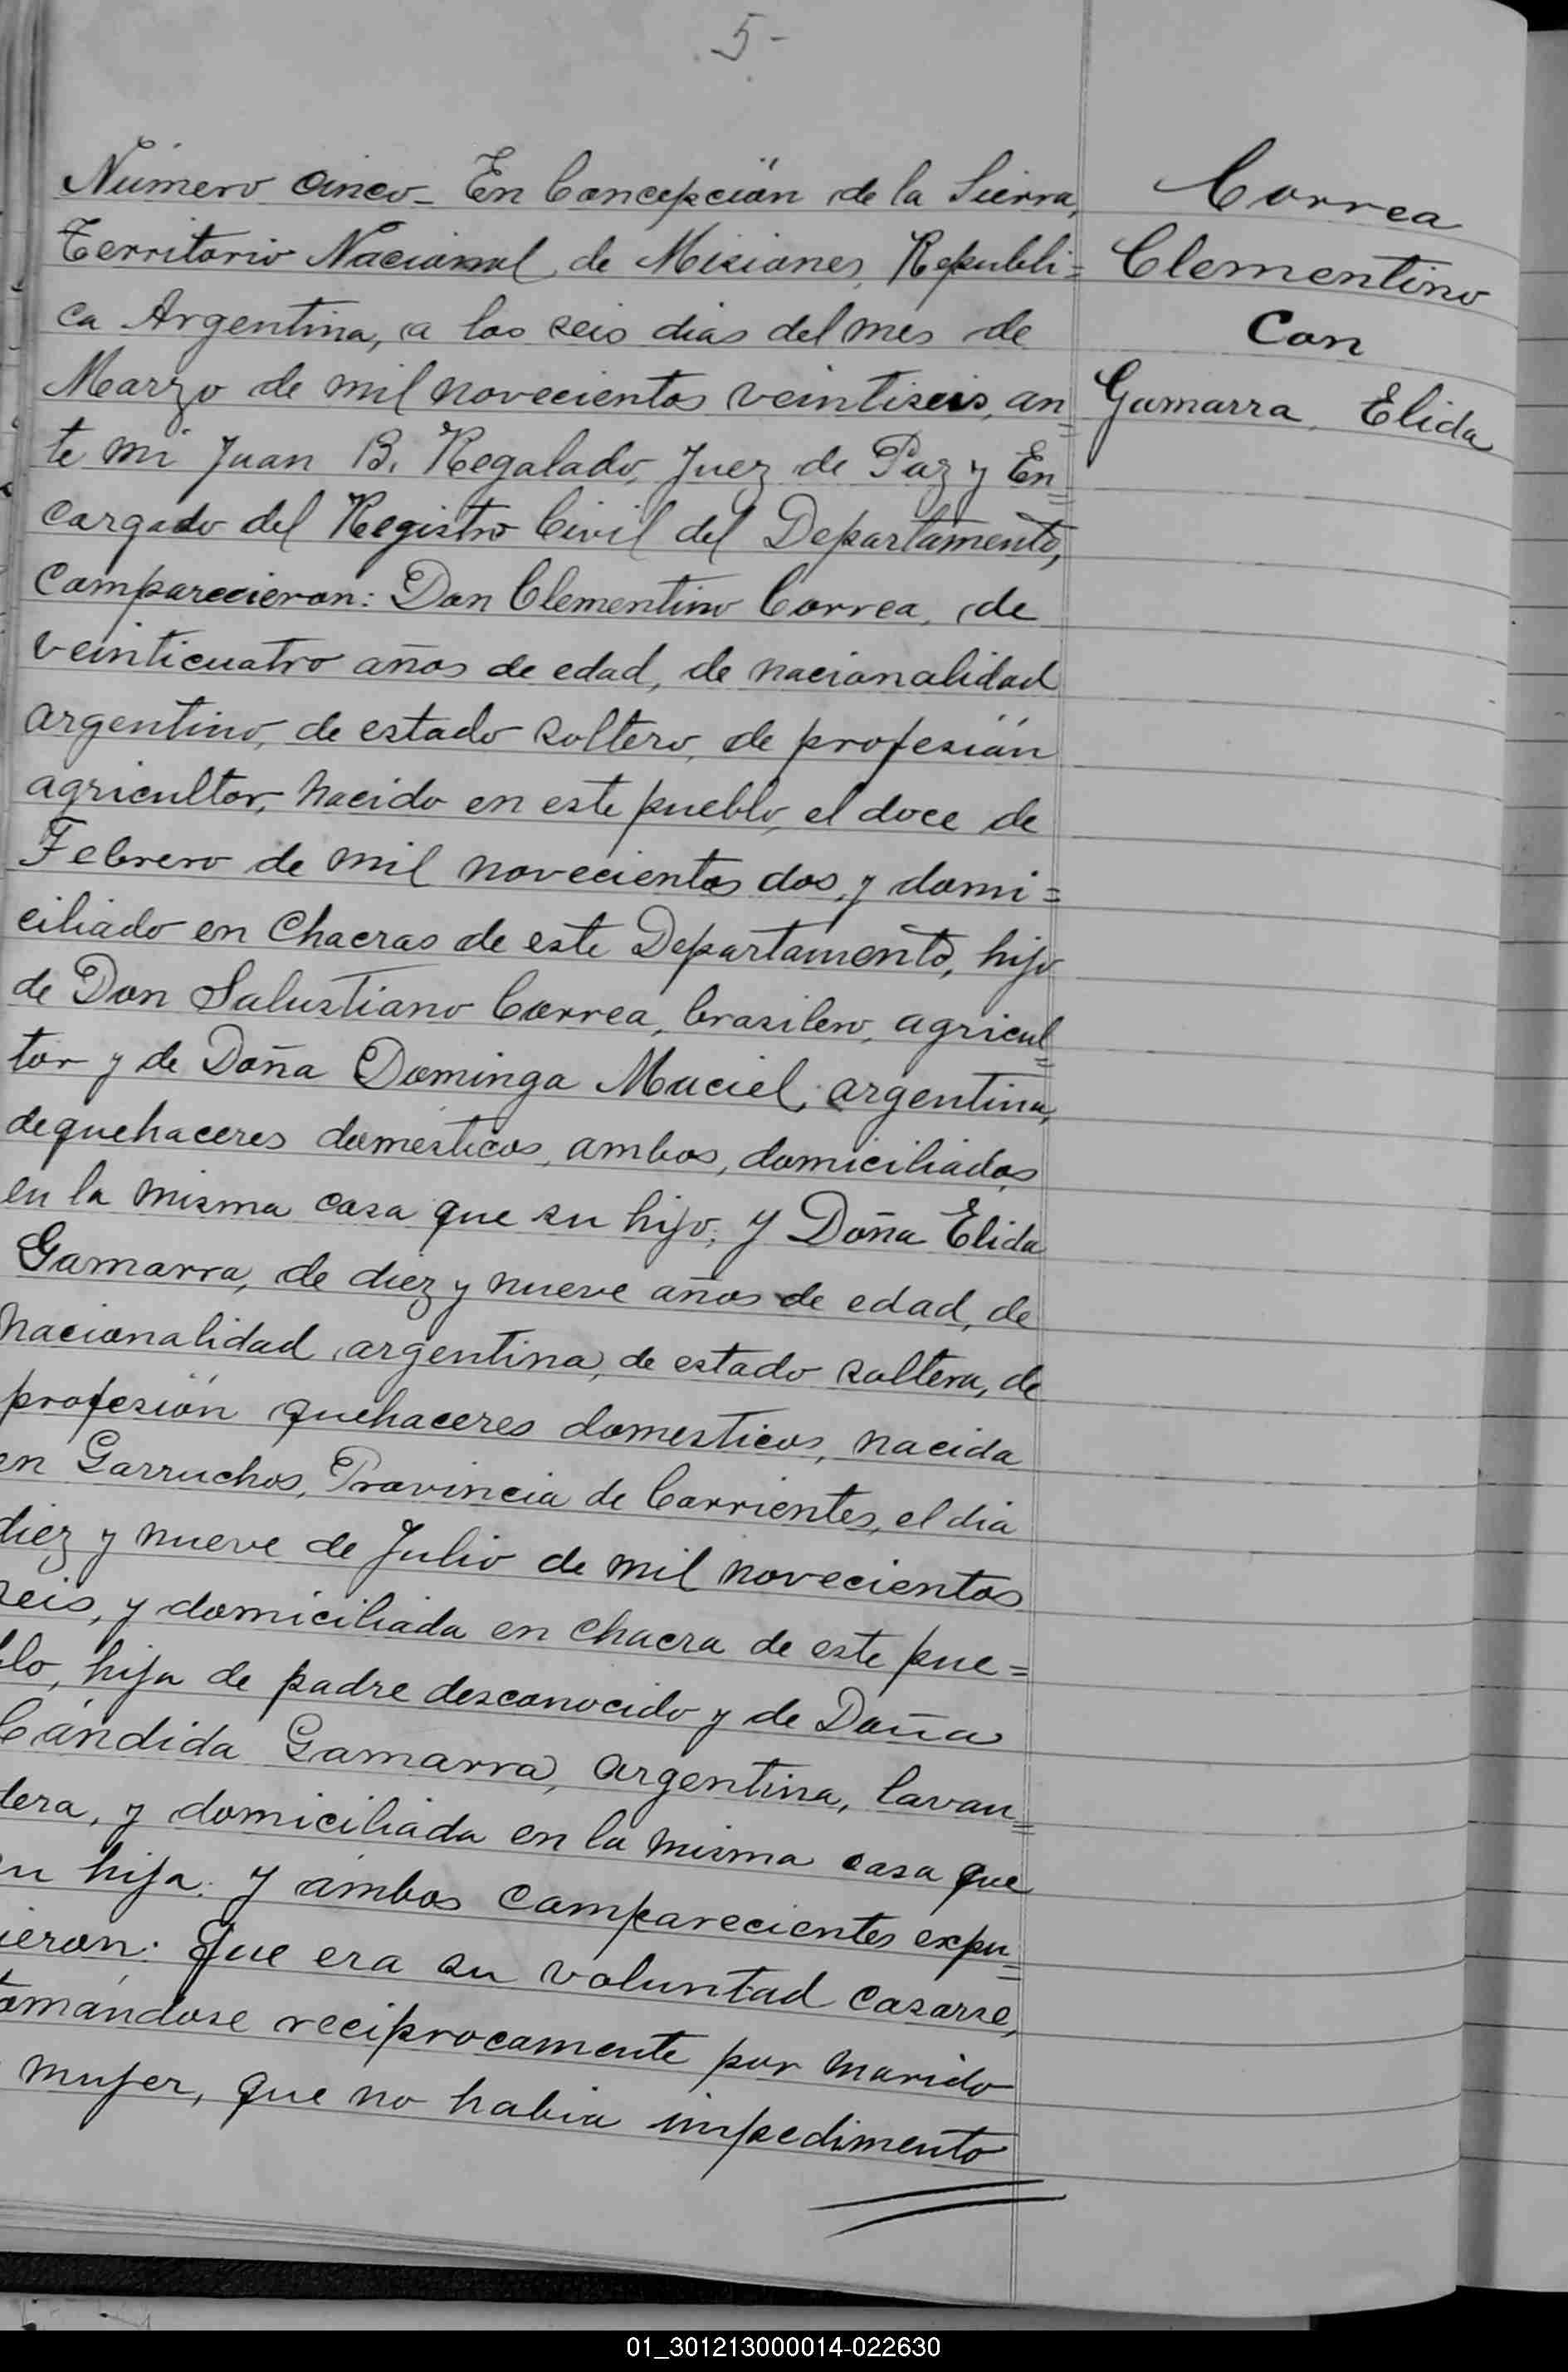 5-
Número cinco- En Concepción de la Sierra,
Territorio Nacional de Misiones, Republi=
ca Argentina, a los seis dias del mes de
Marzo de mil novecientos veintiseis, an=
te mi Juan B. Regalado, Juez de Paz y En=
cargado del Registro Civil del Departamento,
comparecieron: Don Clementino Correa, de
veinticuatro años de edad, de nacionalidad
argentino, de estado soltero, de profesión
agricultor, nacido en este pueblo, el doce de
Febrero de mil novecientos dos, y domi=
ciliado en Chacras de este Departamento, hijo
de Don Salustiano Correa, brasilero, agricul=
tor y de Doña Dominga Maciel, argentina,
de quehaceres domésticos, ambos, domiciliados
en la misma casa que su hijo; y Doña Elida
Gamarra, de diez y nueve años de edad, de
nacionalidad argentina, de estado soltera, de
profesión quehaceres domesticos, nacida
en Garruchos, Provincia de Corrientes, el dia
diez y nueve de Julio de mil novecientos
seis, y domiciliada en chacra de este pue=
blo, hija de padre desconocido y de Doña
Cándida Gamarra, argentina, lavan=
dera, y domiciliada en la misma casa que
su hija: y ambos comparecientes expu=
sieron: Que era su voluntad casarse,
tomándose reciprocamente por marido
mujer, que no habia impedimento
Correa
Clementino
Con
Gamarra, Elida
01_301213000014-022630